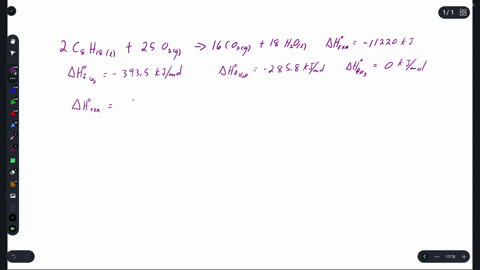 1 / 1
2 C₈H₁₈(ℓ) + 25 O₂(g) → 16 CO₂(g) + 18 H₂O(ℓ) ΔH°rxn = -11220 kJ
ΔH°f CO₂ = -393.5 kJ/mol ΔH°f H₂O = -285.8 kJ/mol ΔH°f O₂ = 0 kJ/mol
ΔH°rxn =